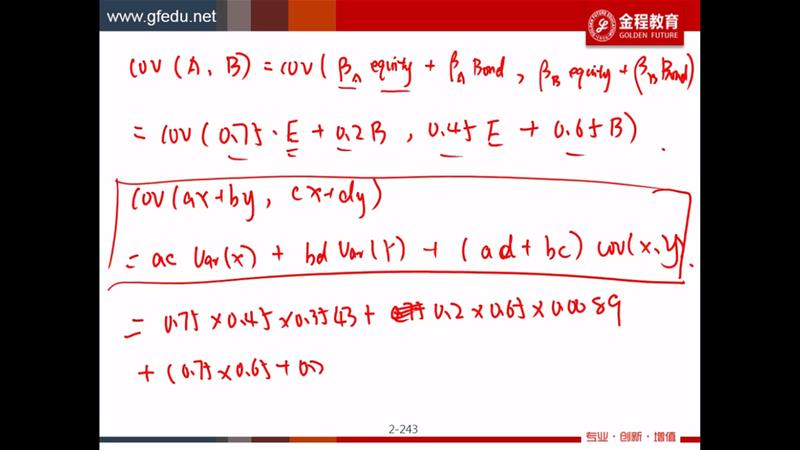 www.gfedu.net
金程教育
GOLDEN FUTURE
cov (A, B) = cov ( β_A equity + β_A Bond , β_B equity + β_B Bond)
= cov (0.75 · E + 0.2B , 0.45 E + 0.65B) .
cov (ax+by, cx+dy)
= ac Var(x) + bd Var(Y) + (ad+bc) cov(x,y).
= 0.75 × 0.45 × 0.3543 + 0.2 × 0.65 × 0.0089
+ (0.75 × 0.65 + 0.
2-243
专业·创新·增值